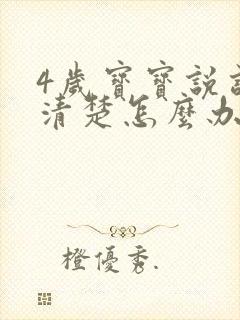 4歲寶寶說
清楚怎麼办
橙優秀.